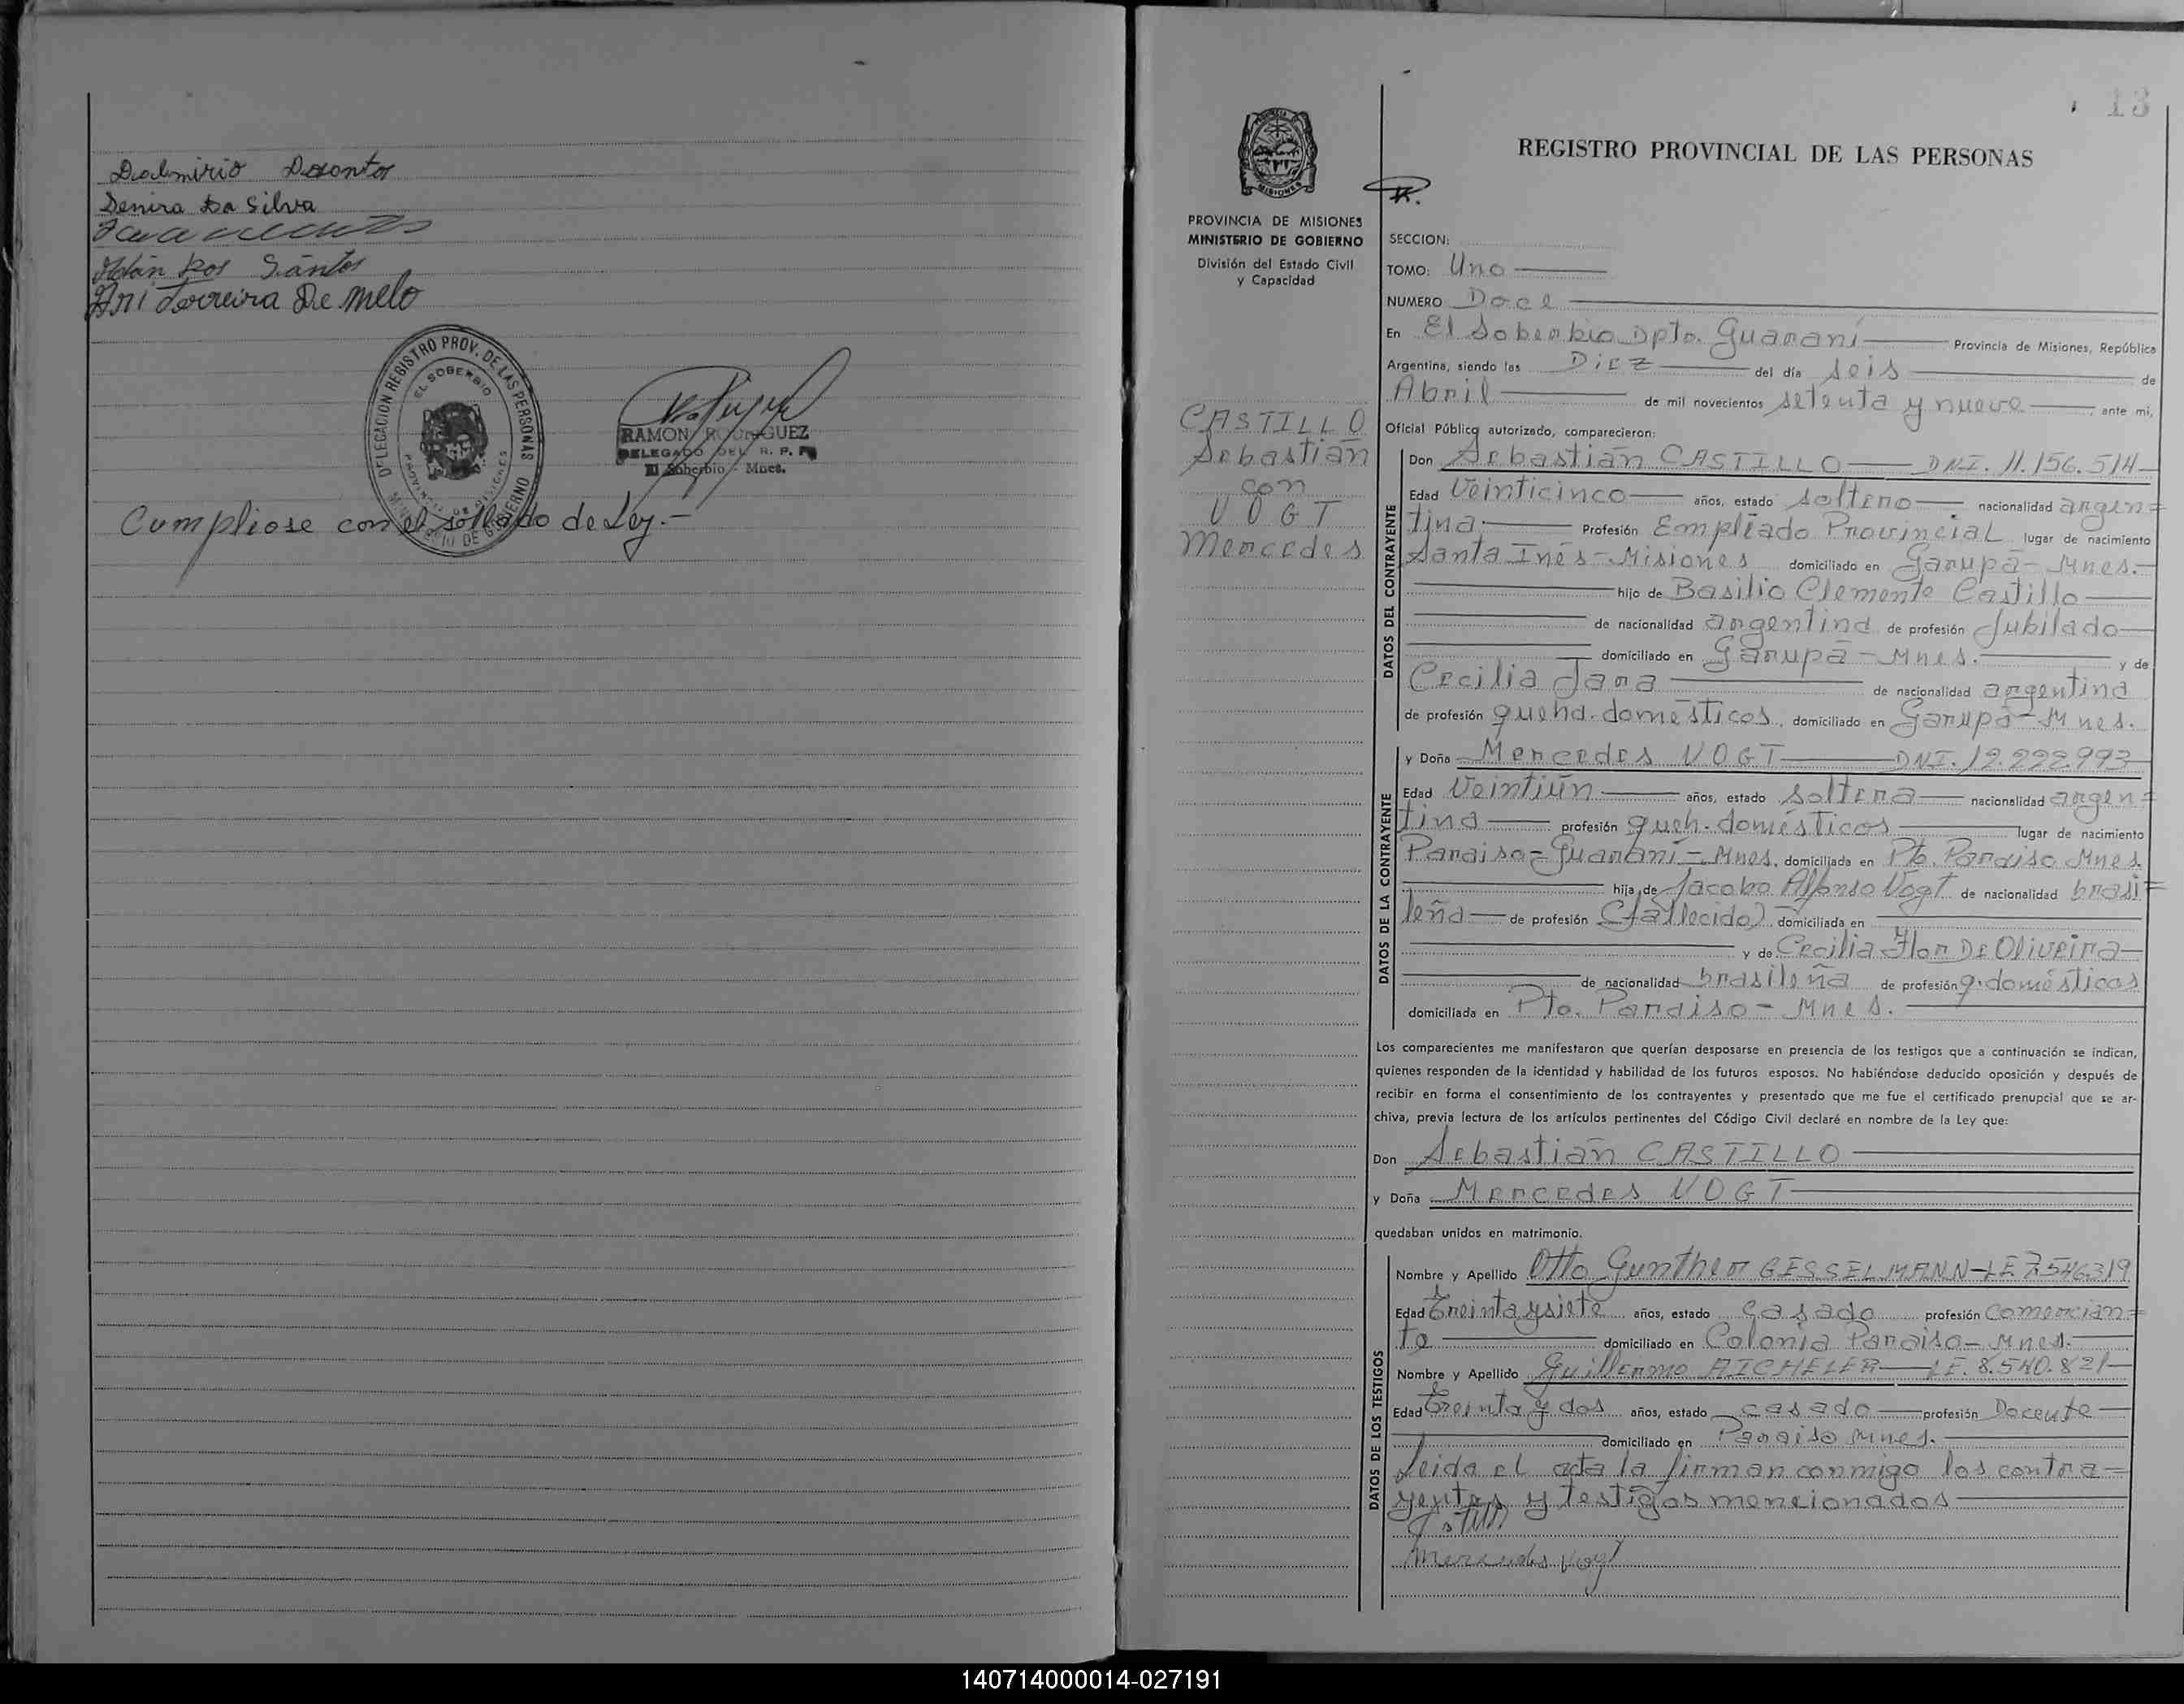 Dalmirio Dosantos
Denira Da Silva
Adán Dos Santos
Ari Ferreira De melo
DELEGACION REGISTRO PROV. DE LAS PERSONAS
EL SOBERBIO
PROVINCIA DE MISIONES
MINISTERIO DE GOBIERNO
RAMON RODRIGUEZ
DELEGADO DEL R. P. P.
El Soberbio - Mnes.
Cumpliose con el sellado de Ley.-
13
REGISTRO PROVINCIAL DE LAS PERSONAS
MISIONES
PROVINCIA DE MISIONES
MINISTERIO DE GOBIERNO
División del Estado Civil
y Capacidad
CASTILLO
Sebastián
con
VOGT
Mercedes
SECCION:
TOMO: Uno
NUMERO Doce
En El Soberbio Dpto. Guaraní Provincia de Misiones, República
Argentina, siendo las Diez del día seis de
Abril de mil novecientos setenta y nueve ante mi,
Oficial Público autorizado, comparecieron:
DATOS DEL CONTRAYENTE
Don Sebastián CASTILLO DNI. 11.156.514
Edad Veinticinco años, estado soltero nacionalidad argen=
tina Profesión Empleado Provincial lugar de nacimiento
Santa Inés-Misiones domiciliado en Garupá-Mnes.-
hijo de Basilio Clemente Castillo
de nacionalidad argentina de profesión Jubilado
domiciliado en Garupá-Mnes. y de
Cecilia Jara de nacionalidad argentina
de profesión quehd. domésticos domiciliado en Garupá-Mnes.
DATOS DE LA CONTRAYENTE
y Doña Mercedes VOGT DNI. 12.222.993
Edad Veintiún años, estado soltera nacionalidad argen=
tina profesión queh. domésticos lugar de nacimiento
Paraiso-Guaraní-Mnes. domiciliada en Pto. Paraiso Mnes.
hija de Jacobo Alfonso Vogt de nacionalidad brasi=
leña de profesión (fallecido) domiciliada en
y de Cecilia Flor De Oliveira
de nacionalidad brasileña de profesión q. domésticos
domiciliada en Pto. Paraiso-Mnes.
Los comparecientes me manifestaron que querían desposarse en presencia de los testigos que a continuación se indican,
quienes responden de la identidad y habilidad de los futuros esposos. No habiéndose deducido oposición y después de
recibir en forma el consentimiento de los contrayentes y presentado que me fue el certificado prenupcial que se ar-
chiva, previa lectura de los artículos pertinentes del Código Civil declaré en nombre de la Ley que:
Don Sebastián CASTILLO
y Doña Mercedes VOGT
quedaban unidos en matrimonio.
DATOS DE LOS TESTIGOS
Nombre y Apellido Otto Gunther GESSELMANN-LE 7.546.319
Edad Treinta y siete años, estado casado profesión comercian=
te domiciliado en Colonia Paraiso-Mnes.
Nombre y Apellido Guillermo AICHELER LE. 8.540.821
Edad Treinta y dos años, estado casado profesión Docente
domiciliado en Paraiso Mnes.
Leida el acta la firman conmigo los contra=
yentes y testigos mencionados
Mercedes Vogt
140714000014-027191